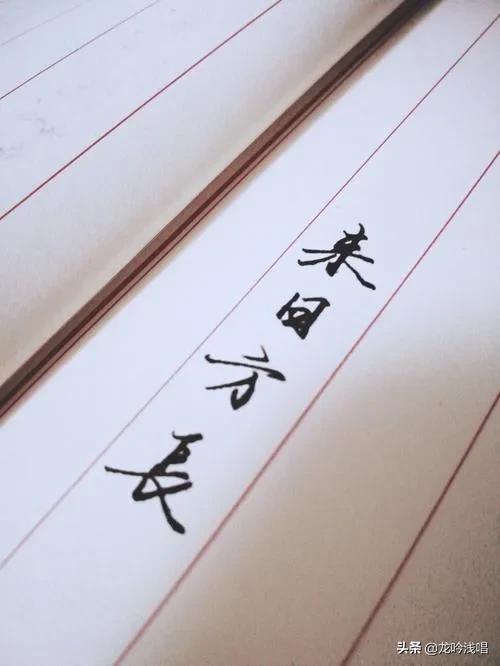 来日方長
头条 @龙吟浅唱